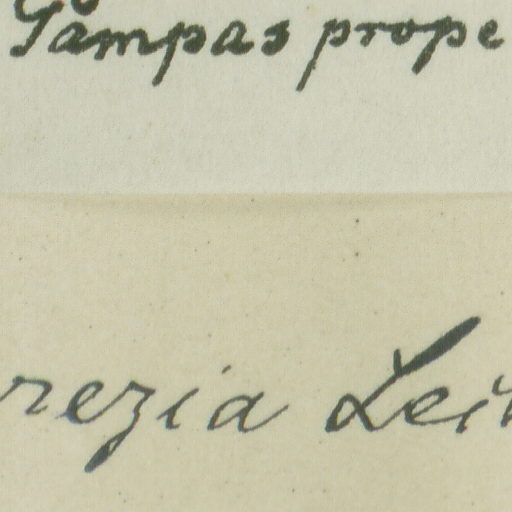 Pampas prope
rezia Lei